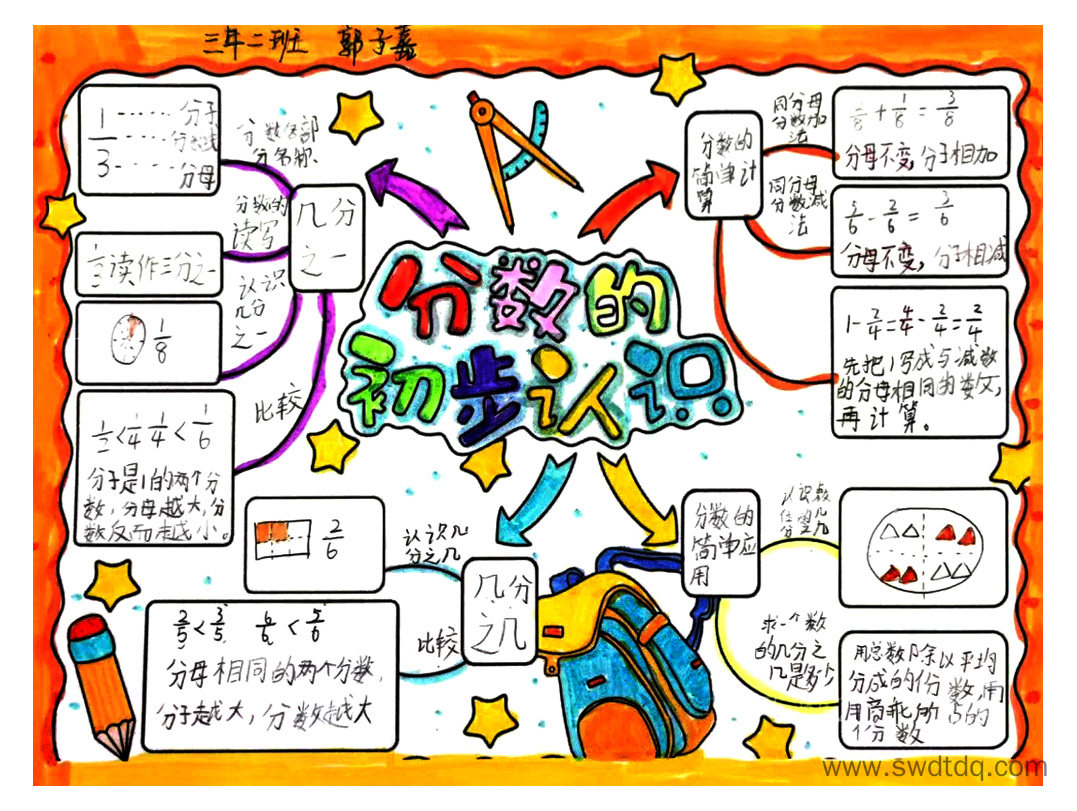 三年二班 郭子嘉
分数的
初步认识
几分
之一
分数各部
分名称
1 …… 分子
— …… 分数线
3 …… 分母
分数的
读写
1/3读作三分之一
认识
几分
之一
1/8
比较
1/2<1/4 1/4<1/6
分子是1的两个分
数，分母越大，分
数反而越小。
分数的
简单计
算
同分母
分数加
法
2/8+1/8=3/8
分母不变，分子相加
同分母
分数减
法
5/6-2/6=3/6
分母不变，分子相减
1-2/4=4/4-2/4=2/4
先把1写成与减数
的分母相同的
再计算。
几分
之几
认识几
分之几
2/6
比较
2/5<3/5 <5/6
分母相同的两个分数，
分子越大，分数越大
分数的
简单应
用
认识
求一个数
的几分之
几是多少
用总数除以平均
分成的份数，用
用商乘所占的
分数
www.swdtdq.com